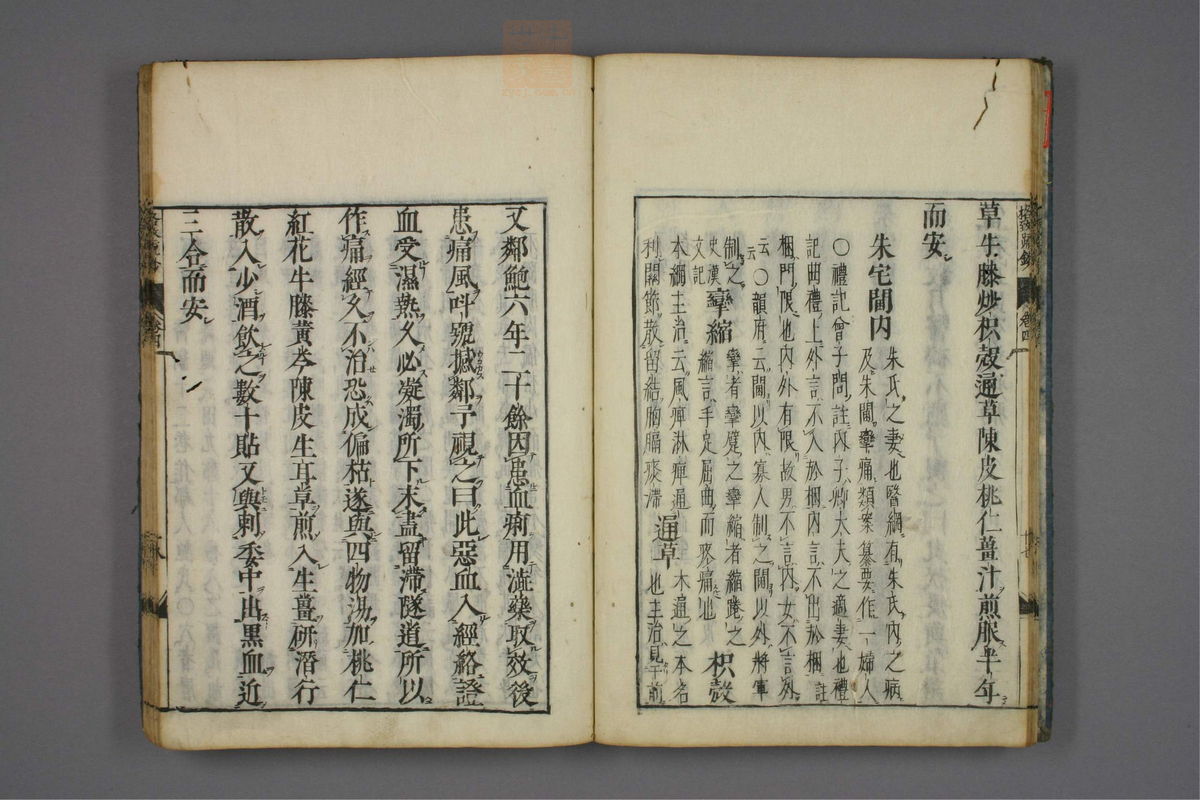 草牛膝炒枳殻通草陳皮桃仁薑汁煎服半年
而安
朱宅閫内
朱氏之妻也醫綱有朱氏内之病
及朱閫攣痛類案纂要作一婦人
〇禮記曾子問註内子卿大夫之適妻也禮
記曲禮上外言不入於梱内言不出於梱註
梱門限也内外有限故男不言内女不言外
云〇韻府云閫以内寡人制之閫以外將軍
制之史漢
文記
攣縮
攣者攣躄之攣縮者縮踡之
縮言手足屈曲而疼痛也
枳殻
本綱主治云風痺淋痺通
利關節散留結胸膈痰滯
通草
木通之本名
也主治見于前
又鄰鮑六年二十餘因患血痢用澁藥取效後
患痛風呌號撼鄰予視之曰此惡血入經絡證
血受濕熱久必凝濁所下未盡留滯隧道所以
作痛經久不治恐成偏枯遂與四物湯加桃仁
紅花牛膝黄芩陳皮生耳草煎入生薑研潛行
散入少酒飲之數十貼又與刺委中出黒血近
三合而安